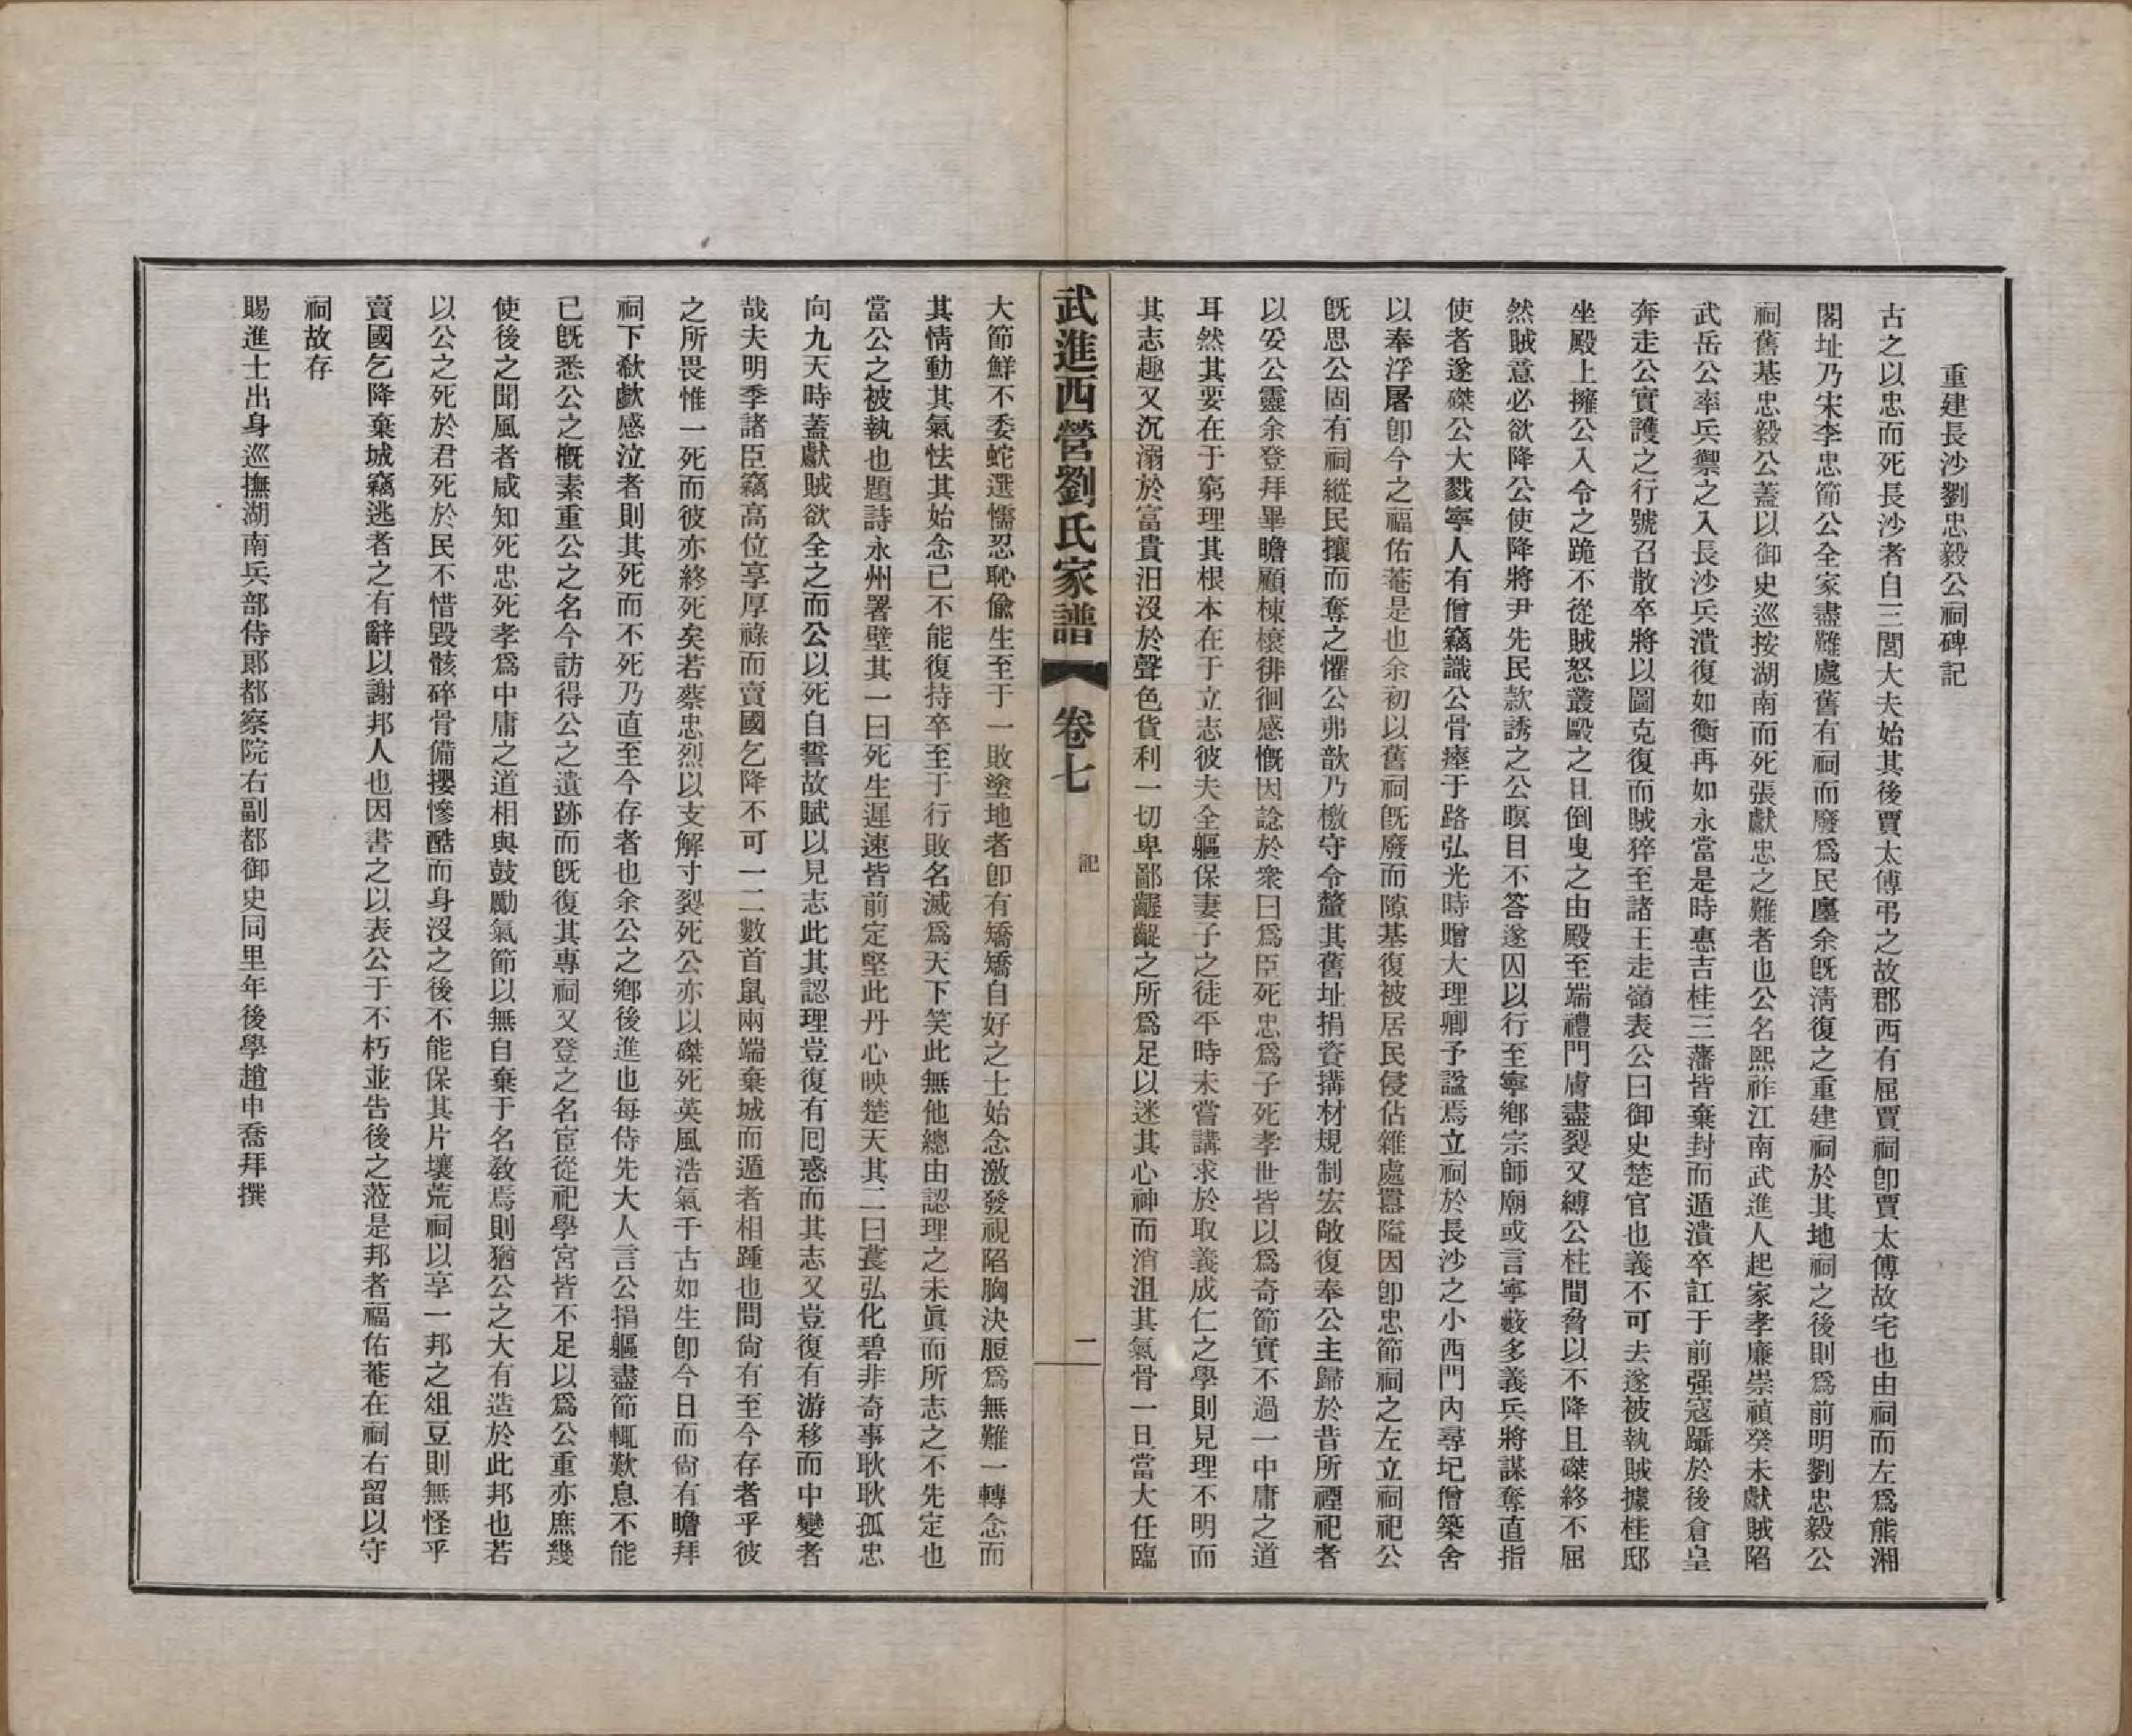 重建長沙劉忠毅公祠碑記
古之以忠而死長沙者自三閭大夫始其後賈太傅弔之故郡西有屈賈祠卽賈太傅故宅也由祠而左爲熊湘
閣址乃宋李忠節公全家盡難處舊有祠而廢爲民廛余旣淸復之重建祠於其地祠之後則爲前明劉忠毅公
祠舊基忠毅公蓋以御史巡按湖南而死張獻忠之難者也公名熙祚江南武進人起家孝廉崇禎癸未獻賊陷
武岳公率兵禦之入長沙兵潰復如衡再如永當是時惠吉桂三藩皆棄封而遁潰卒訌于前强寇躡於後倉皇
奔走公實護之行號召散卒將以圖克復而賊猝至諸王走嶺表公曰御史楚官也義不可去遂被執賊據桂邸
坐殿上擁公入令之跪不從賊怒叢毆之且倒曳之由殿至端禮門膚盡裂又縛公柱間脅以不降且磔終不屈
然賊意必欲降公使降將尹先民款誘之公瞑目不答遂囚以行至寧鄕宗師廟或言寧藪多義兵將謀奪直指
使者遂磔公大戮寧人有僧竊識公骨瘞于路弘光時贈大理卿予諡焉立祠於長沙之小西門內尋圮僧築舍
以奉浮屠卽今之福佑菴是也余初以舊祠旣廢而隙基復被居民侵佔雜處囂隘因卽忠節祠之左立祠祀公
旣思公固有祠縱民攘而奪之懼公弗歆乃檄守令釐其舊址捐資搆材規制宏敞復奉公主歸於昔所禋祀者
以妥公靈余登拜畢瞻顧棟榱徘徊感慨因諗於衆曰爲臣死忠爲子死孝世皆以爲奇節實不過一中庸之道
耳然其要在于窮理其根本在于立志彼夫全軀保妻子之徒平時未嘗講求於取義成仁之學則見理不明而
其志趣又沉溺於富貴汨沒於聲色貨利一切卑鄙齷齪之所爲足以迷其心神而消沮其氣骨一旦當大任臨
武進西營劉氏家譜 卷七 記 二
大節鮮不委蛇選懦忍恥偸生至于一敗塗地者卽有矯矯自好之士始念激發視陷胸決脰爲無難一轉念而
其情動其氣怯其始念已不能復持卒至于行敗名滅爲天下笑此無他總由認理之未眞而所志之不先定也
當公之被執也題詩永州署壁其一曰死生遲速皆前定堅此丹心映楚天其二曰萇弘化碧非奇事耿耿孤忠
向九天時蓋獻賊欲全之而公以死自誓故賦以見志此其認理豈復有囘惑而其志又豈復有游移而中變者
哉夫明季諸臣竊高位享厚祿而賣國乞降不可一二數首鼠兩端棄城而遁者相踵也問尙有至今存者乎彼
之所畏惟一死而彼亦終死矣若蔡忠烈以支解寸裂死公亦以磔死英風浩氣千古如生卽今日而尙有瞻拜
祠下欷歔感泣者則其死而不死乃直至今存者也余公之鄕後進也每侍先大人言公捐軀盡節輒歎息不能
已旣悉公之槪素重公之名今訪得公之遺跡而旣復其專祠又登之名宦從祀學宮皆不足以爲公重亦庶幾
使後之聞風者咸知死忠死孝爲中庸之道相與鼓勵氣節以無自棄于名敎焉則猶公之大有造於此邦也若
以公之死於君死於民不惜毀骸碎骨備攖慘酷而身沒之後不能保其片壤荒祠以享一邦之俎豆則無怪乎
賣國乞降棄城竊逃者之有辭以謝邦人也因書之以表公于不朽並告後之蒞是邦者福佑菴在祠右留以守
祠故存
賜進士出身巡撫湖南兵部侍郞都察院右副都御史同里年後學趙申喬拜撰